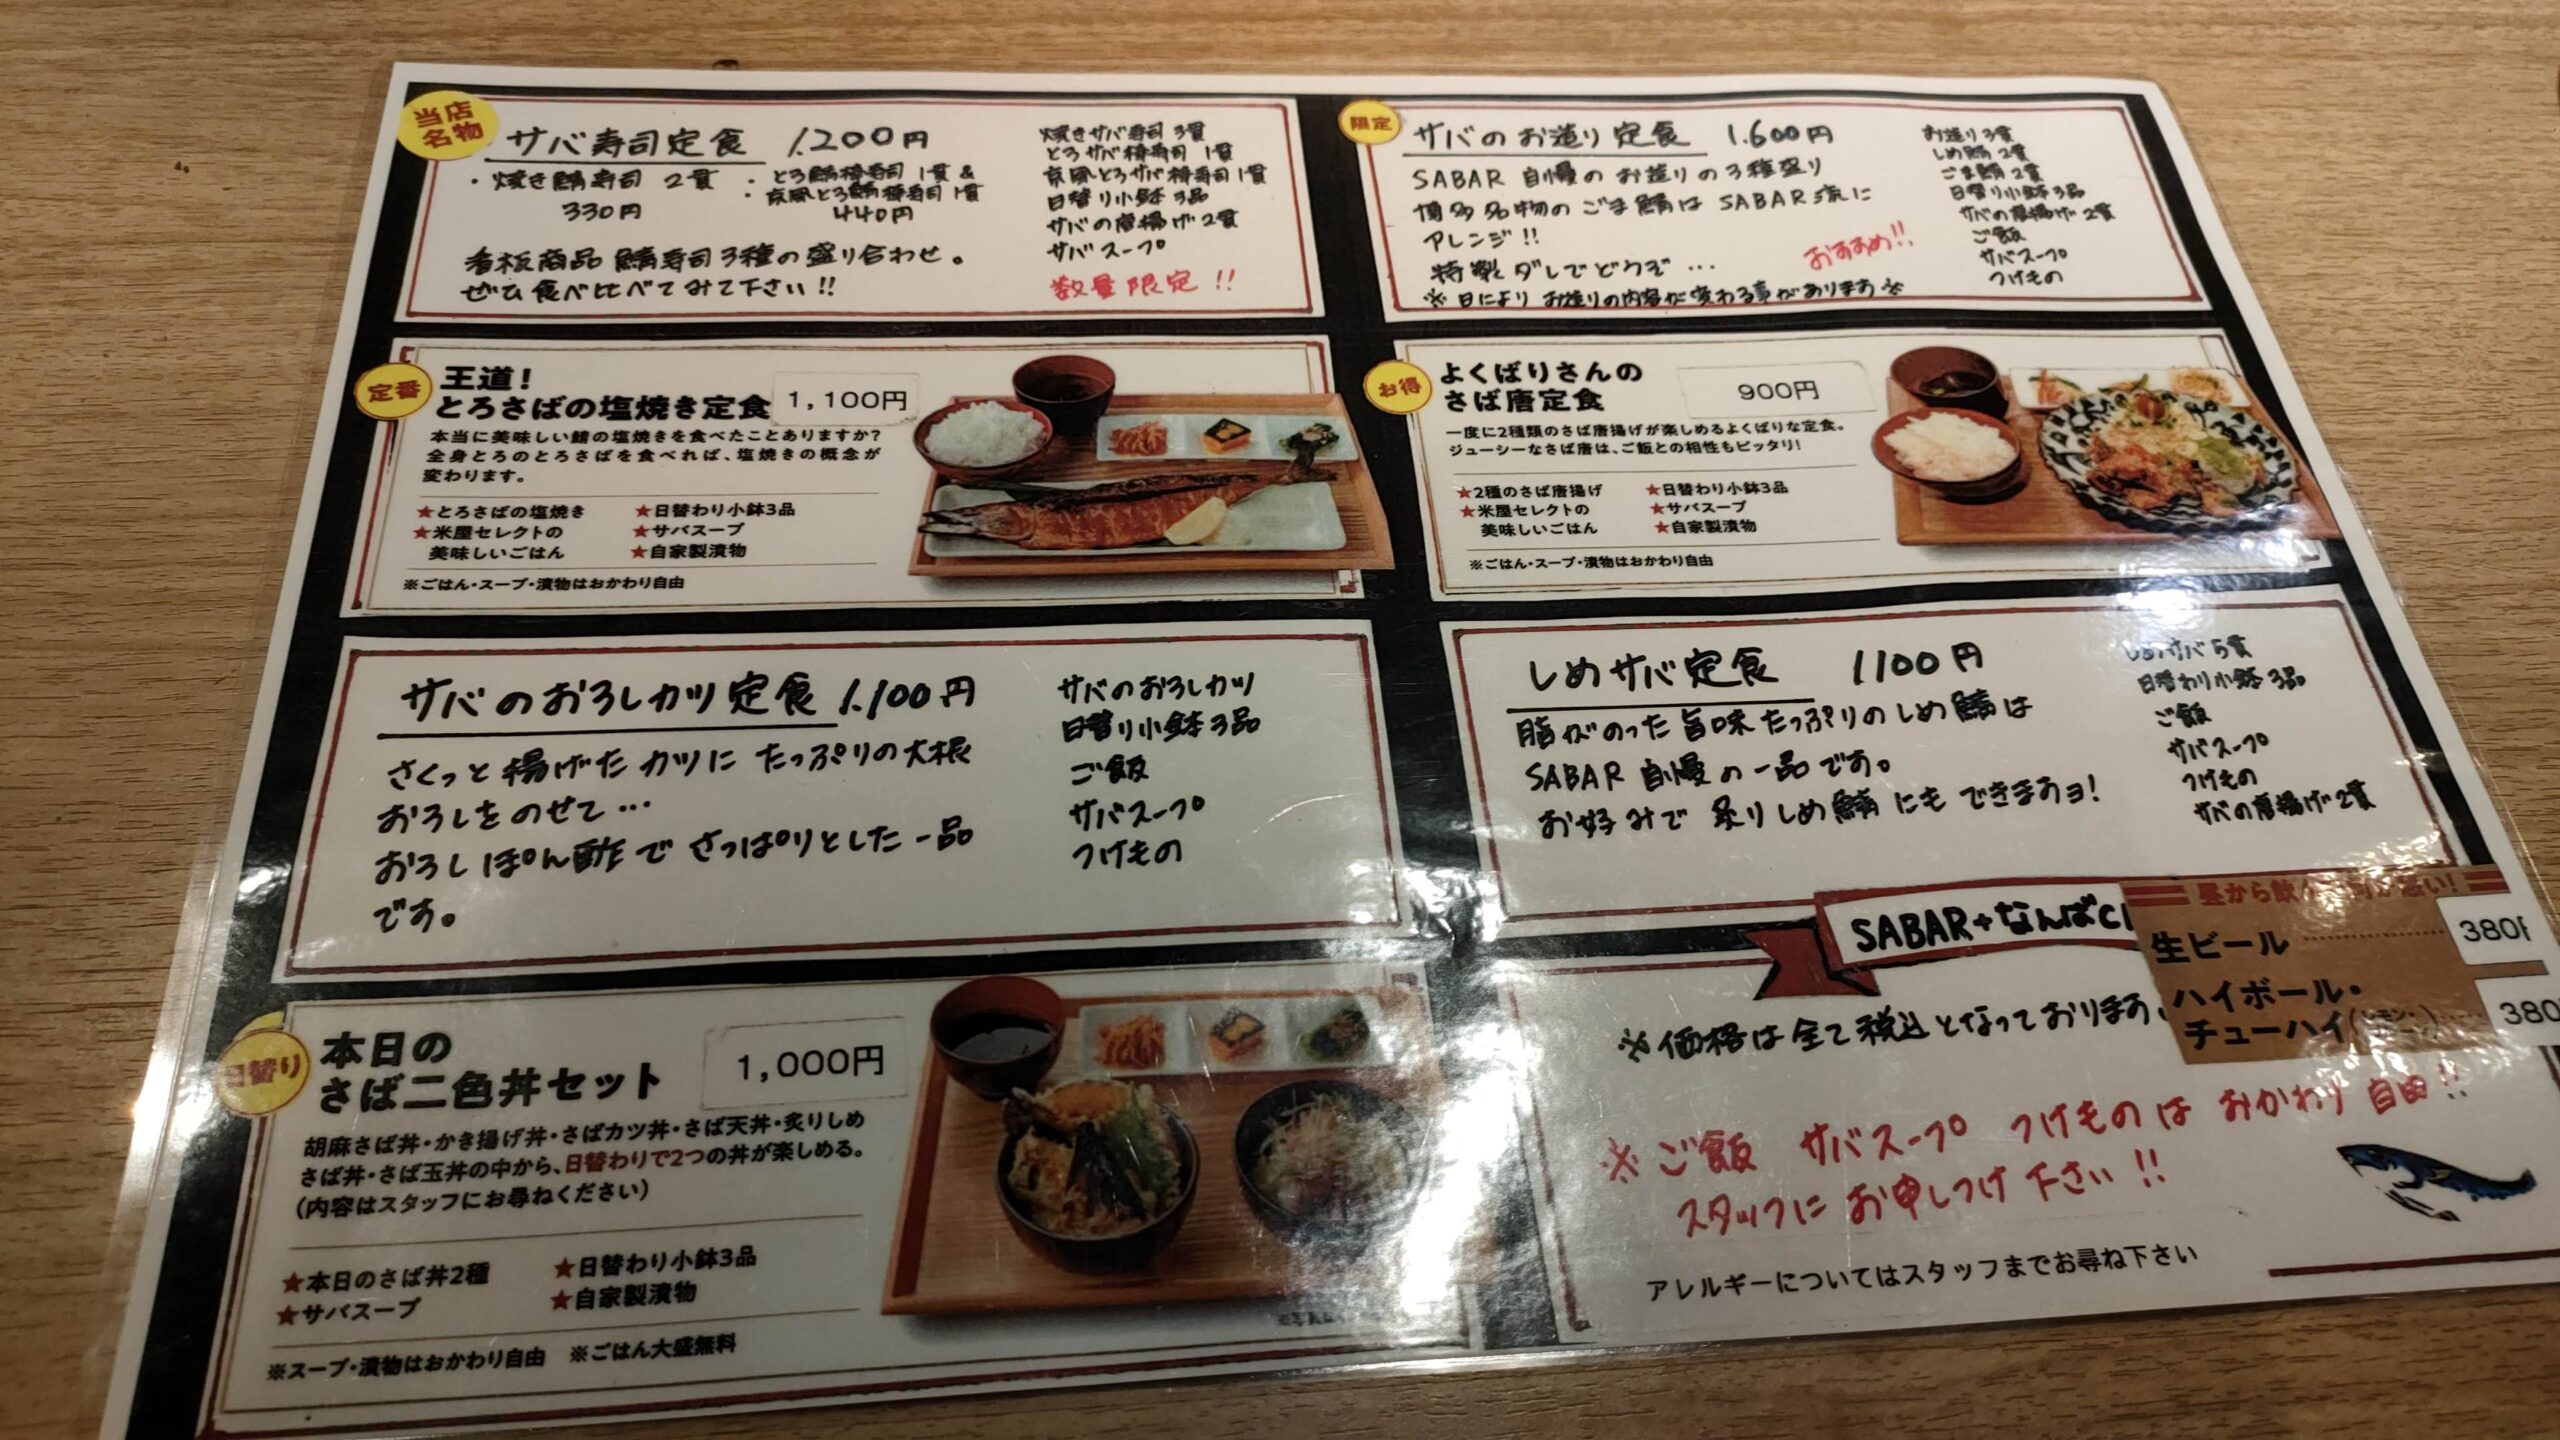 当店名物
サバ寿司定食 1.200円
・焼き鯖寿司 2貫
330円
・とろ鯖棒寿司 1貫 &
・京風とろ鯖棒寿司 1貫
440円
看板商品 鯖寿司3種の盛り合わせ。
ぜひ食べ比べてみて下さい!!
焼きサバ寿司 3貫
とろサバ棒寿司 1貫
京風とろサバ棒寿司 1貫
日替り小鉢 3品
サバの唐揚げ 2貫
サバスープ
数量限定!!
限定
サバのお造り定食 1.600円
SABAR 自慢のお造りの3種盛り
博多名物のごま鯖は SABAR流に
アレンジ!!
特製ダレでどうぞ…
おすすめ!!
※日により お造りの内容が変わる事があります※
お造り3貫
しめ鯖2貫
ごま鯖2貫
日替り小鉢3品
サバの唐揚げ2貫
ご飯
サバスープ
つけもの
定番
王道!
とろさばの塩焼き定食 1,100円
本当に美味しい鯖の塩焼きを食べたことありますか?
全身とろのとろさばを食べれば、塩焼きの概念が
変わります。
★とろさばの塩焼き
★米屋セレクトの
美味しいごはん
★日替わり小鉢3品
★サバスープ
★自家製漬物
※ごはん・スープ・漬物はおかわり自由
お得
よくばりさんの
さば唐定食 900円
一度に2種類のさば唐揚げが楽しめるよくばりな定食。
ジューシーなさば唐は、ご飯との相性もピッタリ!
★2種のさば唐揚げ
★米屋セレクトの
美味しいごはん
★日替わり小鉢3品
★サバスープ
★自家製漬物
※ごはん・スープ・漬物はおかわり自由
サバのおろしカツ定食 1.100円
さくっと揚げたカツに たっぷりの大根
おろしをのせて…
おろしぽん酢で さっぱりとした一品
です。
サバのおろしカツ
日替り小鉢3品
ご飯
サバスープ
つけもの
しめサバ定食 1100円
脂がのった旨味たっぷりのしめ鯖は
SABAR 自慢の一品です。
お好みで 炙りしめ鯖にもできますョ!
しめサバ5貫
日替わり小鉢3品
ご飯
サバスープ
つけもの
サバの唐揚げ2貫
日替り
本日の
さば二色丼セット 1,000円
胡麻さば丼・かき揚げ丼・さばカツ丼・さば天丼・炙りしめ
さば丼・さば玉丼の中から、日替わりで2つの丼が楽しめる。
(内容はスタッフにお尋ねください)
★本日のさば丼2種
★サバスープ
★日替わり小鉢3品
★自家製漬物
※スープ・漬物はおかわり自由 ※ごはん大盛無料
SABAR+なんばCI
昼から飲 悪い!
生ビール 380
ハイボール・
チューハイ 380
※価格は全て税込となっております
※ご飯 サバスープ つけものは おかわり自由!!
スタッフにお申しつけ下さい!!
アレルギーについてはスタッフまでお尋ね下さい